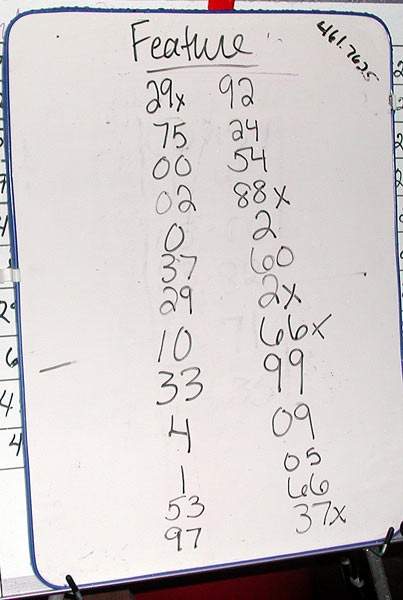 Feature
461.7625
29x 92
75 24
00 54
02 88x
0 2
37 60
29 2x
10 66x
33 99
4 09
1 05
53 66
97 37x